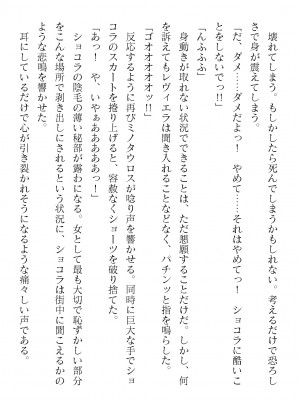 壊れてしまう。もしかしたら死んでしまうかもしれない。考えるだけで恐ろし
さで身が震えてしまう。
「だ、ダメ……ダメだよっ！　やめて……それはやめてっ！　ショコラに酷いこ
とをしないでっ!!」
「んふふふ」
身動きが取れない状況でできることは、ただ懇願することだけだ。しかし、何
を訴えてもレヴィエラは聞き入れることなどなく、パチンッと指を鳴らした。
「ゴオオオオオッ!!」
反応するように再びミノタウロスが唸り声を響かせる。同時に巨大な手でショ
コラのスカートを捲り上げると、容赦なくショーツを破り捨てた。
「あっ！　や、いやぁああああっ！」
ショコラの陰毛の薄い秘部が露わになる。女として最も大切で恥ずかしい部分
をこんな場所で剥き出しにされるという状況に、ショコラは街中に聞こえるかの
ような悲鳴を響かせた。
耳にしているだけで心が引き裂かれそうになるような痛々しい声である。